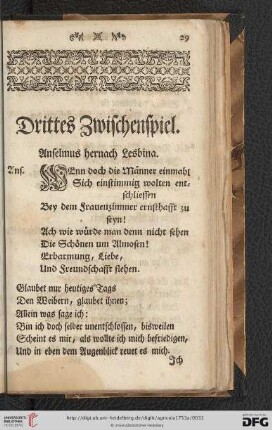 29
Drittes Zwischenspiel.
Anselmus hernach Lesbina.
Ans. WEnn doch die Männer einmahl
Sich einstimmig wolten ent-
schliessen
Bey dem Frauenzimmer ernsthafft zu
seyn!
Ach wie würde man denn nicht sehen
Die Schönen um Almosen!
Erbarmung, Liebe,
Und Freundschafft flehen.
Glaubet nur heutiges Tags
Den Weibern, glaubet ihnen;
Allein was sage ich:
Bin ich doch selber unentschlossen, bisweilen
Scheint es mir, als wollte ich mich befriedigen,
Und in eben dem Augenblick reuet es mich.
Ich
UNIVERSITÄTS-
BIBLIOTHEK
HEIDELBERG
gefördert durch die
DFG